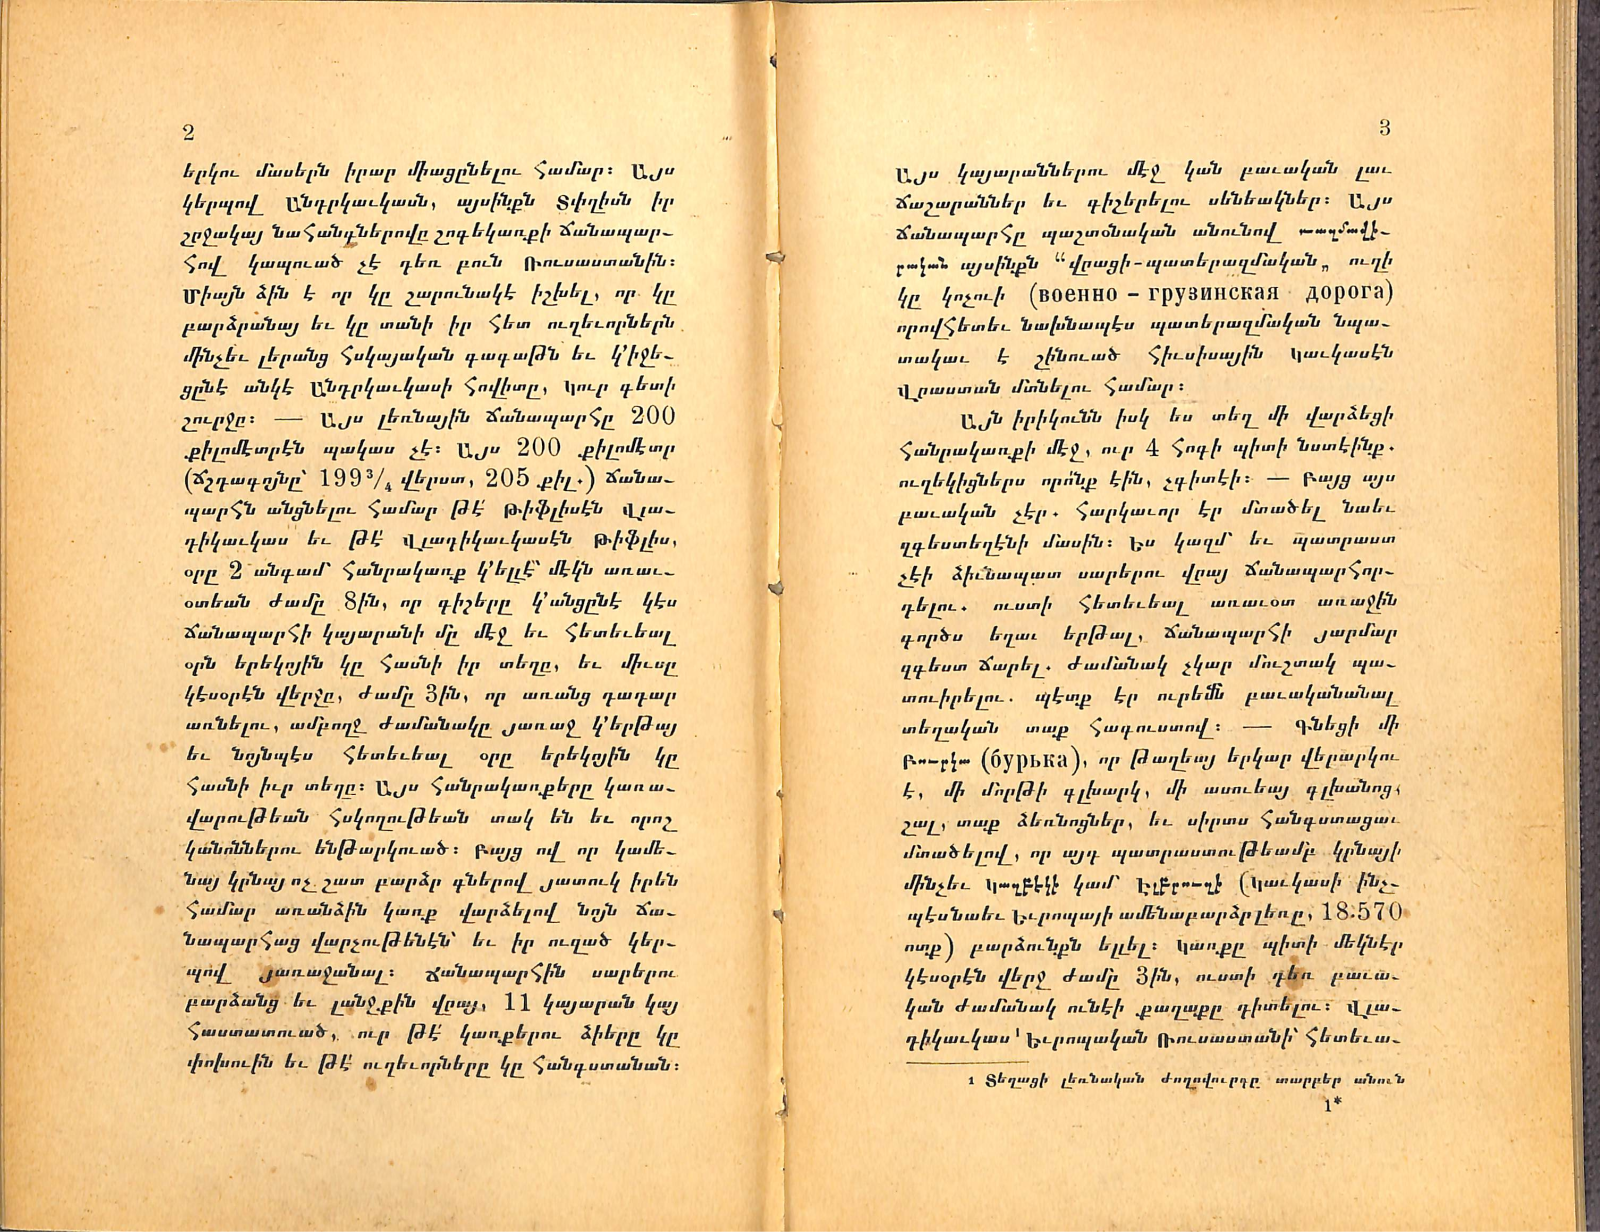 2
երկու մասերն իրար միացընելու համար։ Այս
կերպով Անդրկաւկասն, այսինքն Տփղիսն իր
շրջակայ նահանգներովը շոգեկառքի ճանապար-
հով կապուած չէ դեռ բուն Ռուսաստանին։
Միայն ձին է որ կը շարունակէ իշխել, որ կը
բարձրանայ եւ կը տանի իր հետ ուղեւորներն
մինչեւ լերանց հսկայական գագաթն եւ կ՚իջե-
ցընէ անկէ Անդրկաւկասի հովիտը, Կուր գետի
շուրջը։ — Այս լեռնային ճանապարհը 200
քիլոմետրէն պակաս չէ։ Այս 200 քիլոմէտր
(ճշդագոյնը՝ 199³/₄ վերստ, 205 քիլ.) ճանա-
պարհն անցնելու համար թէ՛ Թիֆլիսէն Վլա-
դիկաւկաս եւ թէ՛ Վլադիկաւկասէն Թիֆլիս,
օրը 2 անգամ հանրակառք կ՚ելլէ՝ մէկն առաւ-
օտեան ժամը 8ին, որ գիշերը կ՚անցընէ կէս
ճանապարհի կայարանի մը մէջ եւ հետեւեալ
օրն երեկոյին կը հասնի իր տեղը, եւ միւսը
կէսօրէն վերջը, ժամը 3ին, որ առանց դադար
առնելու, ամբողջ ժամանակը յառաջ կ՚երթայ
եւ նոյնպէս հետեւեալ օրը երեկոյին կը
հասնի իւր տեղը։ Այս հանրակառքերը կառա-
վարութեան հսկողութեան տակ են եւ որոշ
կանոններու ենթարկուած։ Բայց ով որ կամե-
նայ կրնայ ոչ շատ բարձր գներով յատուկ իրեն
համար առանձին կառք վարձելով նոյն ճա-
նապարհաց վարչութենէն՝ եւ իր ուզած կեր-
պով յառաջանալ։ Ճանապարհին սարերու
բարձանց եւ լանջքին վրայ, 11 կայարան կայ
հաստատուած, ուր թէ՛ կառքերու ձիերը կը
փոխուին եւ թէ՛ ուղեւորները կը հանգստանան։
3
Այս կայարաններու մէջ կան բաւական լաւ
ճաշարաններ եւ գիշերելու սենեակներ։ Այս
ճանապարհը պաշտօնական անունով ռազմավի-
րական այսինքն “վրացի-պատերազմական„ ուղի
կը կոչուի (военно – грузинская дорога)
որովհետեւ նախնապէս պատերազմական նպա-
տակաւ է շինուած Հիւսիսային Կաւկասէն
Վրաստան մտնելու համար։
Այն իրիկունն իսկ ես տեղ մի վարձեցի
հանրակառքի մէջ, ուր 4 հոգի պիտի նստէինք.
ուղեկիցներս որո՛նք էին, չգիտէի։ — Բայց այս
բաւական չէր. հարկաւոր էր մտածել նաեւ
զգեստեղէնի մասին։ Ես կազմ եւ պատրաստ
չէի ձիւնապատ սարերու վրայ ճանապարհոր-
դելու. ուստի հետեւեալ առաւօտ առաջին
գործս եղաւ երթալ, ճանապարհի յարմար
զգեստ ճարել. ժամանակ չկար մուշտակ պա-
տուիրելու. պէտք էր ուրեմն բաւականանալ
տեղական տաք հագուստով։ — Գնեցի մի
Բուրկա (бурька), որ թաղեայ երկար վերարկու
է, մի մորթի գլխարկ, մի ասուեայ գլխանոց,
շալ, տաք ձեռնոցներ, եւ սիրտս հանգստացաւ
մտածելով, որ այդ պատրաստութեամբ կրնայի
մինչեւ Կազբէկի կամ Էլբրուզի (Կաւկասի ինչ-
պէսնաեւ Եւրոպայի ամենաբարձր լեռը, 18.570
ոտք) բարձունքն ելլել։ Կառքը պիտի մեկնէր
կէսօրէն վերջ ժամը 3ին, ուստի դեռ բաւա-
կան ժամանակ ունէի քաղաքը դիտելու։ Վլա-
դիկաւկաս¹ Եւրոպական Ռուսաստանի՝ հետեւա-
1 Տեղացի լեռնական ժողովուրդը տարբեր անուն
1*